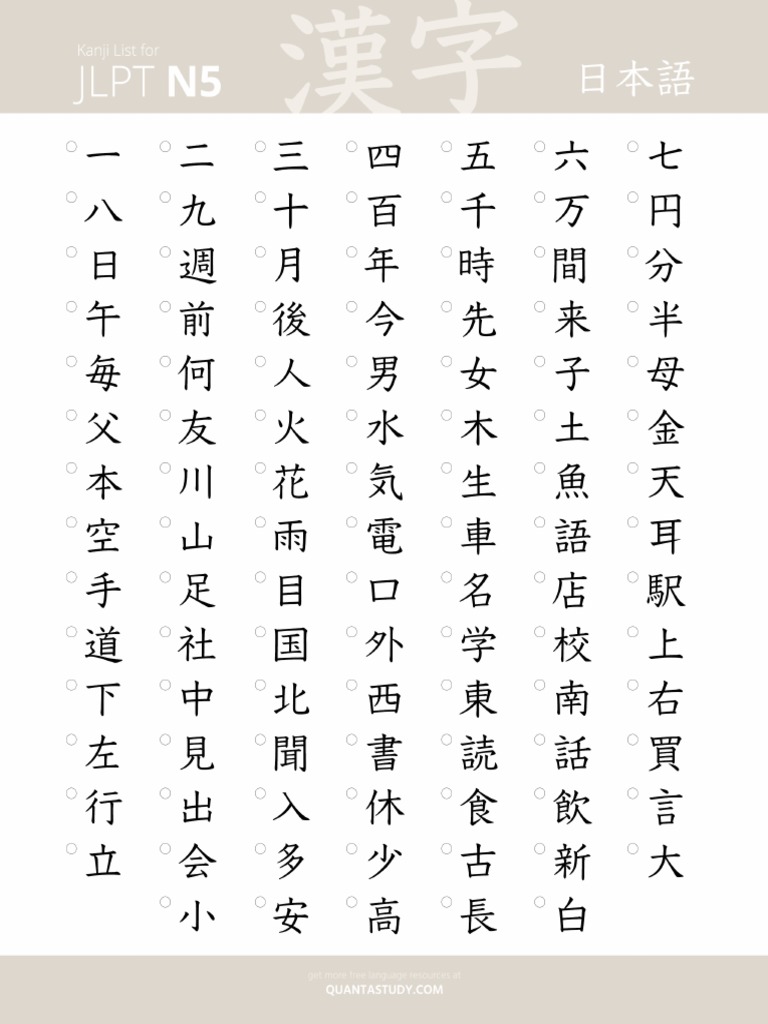 Kanji List for
JLPT N5
漢字
日本語
一 二 三 四 五 六 七
八 九 十 百 千 万 円
日 週 月 年 時 間 分
午 前 後 今 先 来 半
毎 何 人 男 女 子 母
父 友 火 水 木 土 金
本 川 花 気 生 魚 天
空 山 雨 電 車 語 耳
手 足 目 口 名 店 駅
道 社 国 外 学 校 上
下 中 北 西 東 南 右
左 見 聞 書 読 話 買
行 出 入 休 食 飲 言
立 会 多 少 古 新 大
小 安 高 長 白
get more free language resources at
QUANTASTUDY.COM